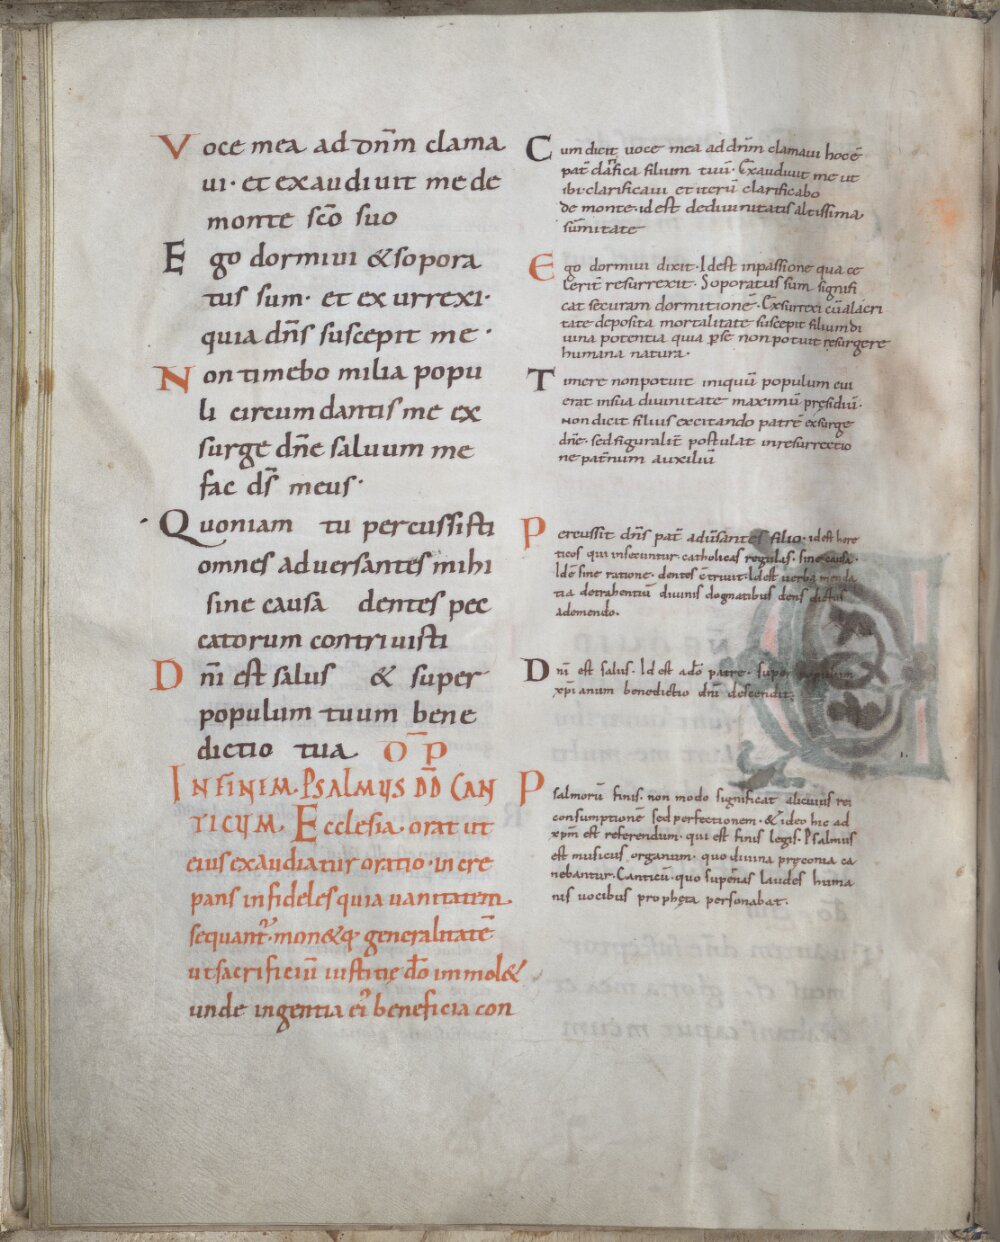 Voce mea ad dn̄m clama
ui· et exaudiuit me de
monte sc̄o suo
Ego dormiui & sopora
tus sum· et exurrexi·
quia dn̄s suscepit me·
Non timebo milia popu
li circumdantis me ex
surge dn̄e saluum me
fac ds̄ meus·
Quoniam tu percussisti
omnes aduersantes mihi
sine causa dentes pec
catorum contriuisti
Dn̄i est salus & super
populum tuum bene
dictio tua
IN FINEM. PSALMUS DD̄ CAN
TICUM. Ecclesia orat ut
eius exaudiatur oratio· incre
pans infideles quia uanitatem
sequant᷑· mon&q· generalitatē
ut sacrificiū iustitię dō immol&
unde ingentia ei᷒ beneficia con
Cum dicit uoce mea ad dn̄m clamaui hoc ē
pat̄ clāfica filium tuū· Exaudiuit me ut
ibi· clarificaui et iterū clarificabo
de monte· id est de diuinitatis altissima
sūmitate
Ego dormiui dixit· Id est in passione qua ce
Cerit resurrexit· Soporatus sum signifi
cat securam dormitionē· Exsurrexi cū alacri
tate deposita mortalitate suscepit filium di
uina potentia quia p̄ se non potuit resurgere
humana natura·
Timere non potuit iniquū populum cui
erat in sua diuinitate maximū pręsidiū·
Non dicit filius excitando patrē exsurge
dn̄e· sed figuralit̄ postulat in resurrectio
ne pat̄num auxiliū
Percussit dn̄s pat̄ aduersantes filio· id est here
ticos qui insecuntur catholicas regulas· sine causa·
Id ē sine ratione· dentes c̄triuit· Id est uerba menda
tia detrahentiū diuinis dogmatibus dens dictus
a demendo·
Dn̄i est salus· Id est a dō patre· super populum
xp̄ianum benedictio dn̄i descendit·
Psalmorū finis· non modo significat alicuius rei
consumptionē sed perfectionem· & ideo hic ad
xp̄m est referendum· qui est finis legis· Psalmus
est musicus organum· quo diuina pręconia ca
nebantur· Canticū· quo sup̄nas laudes huma
nis uocibus prophęta personabat·